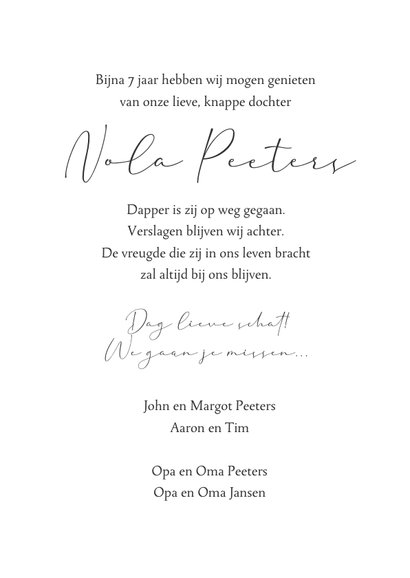 Bijna 7 jaar hebben wij mogen genieten
van onze lieve, knappe dochter
Nola Peeters
Dapper is zij op weg gegaan.
Verslagen blijven wij achter.
De vreugde die zij in ons leven bracht
zal altijd bij ons blijven.
Dag lieve schat!
We gaan je missen...
John en Margot Peeters
Aaron en Tim
Opa en Oma Peeters
Opa en Oma Jansen